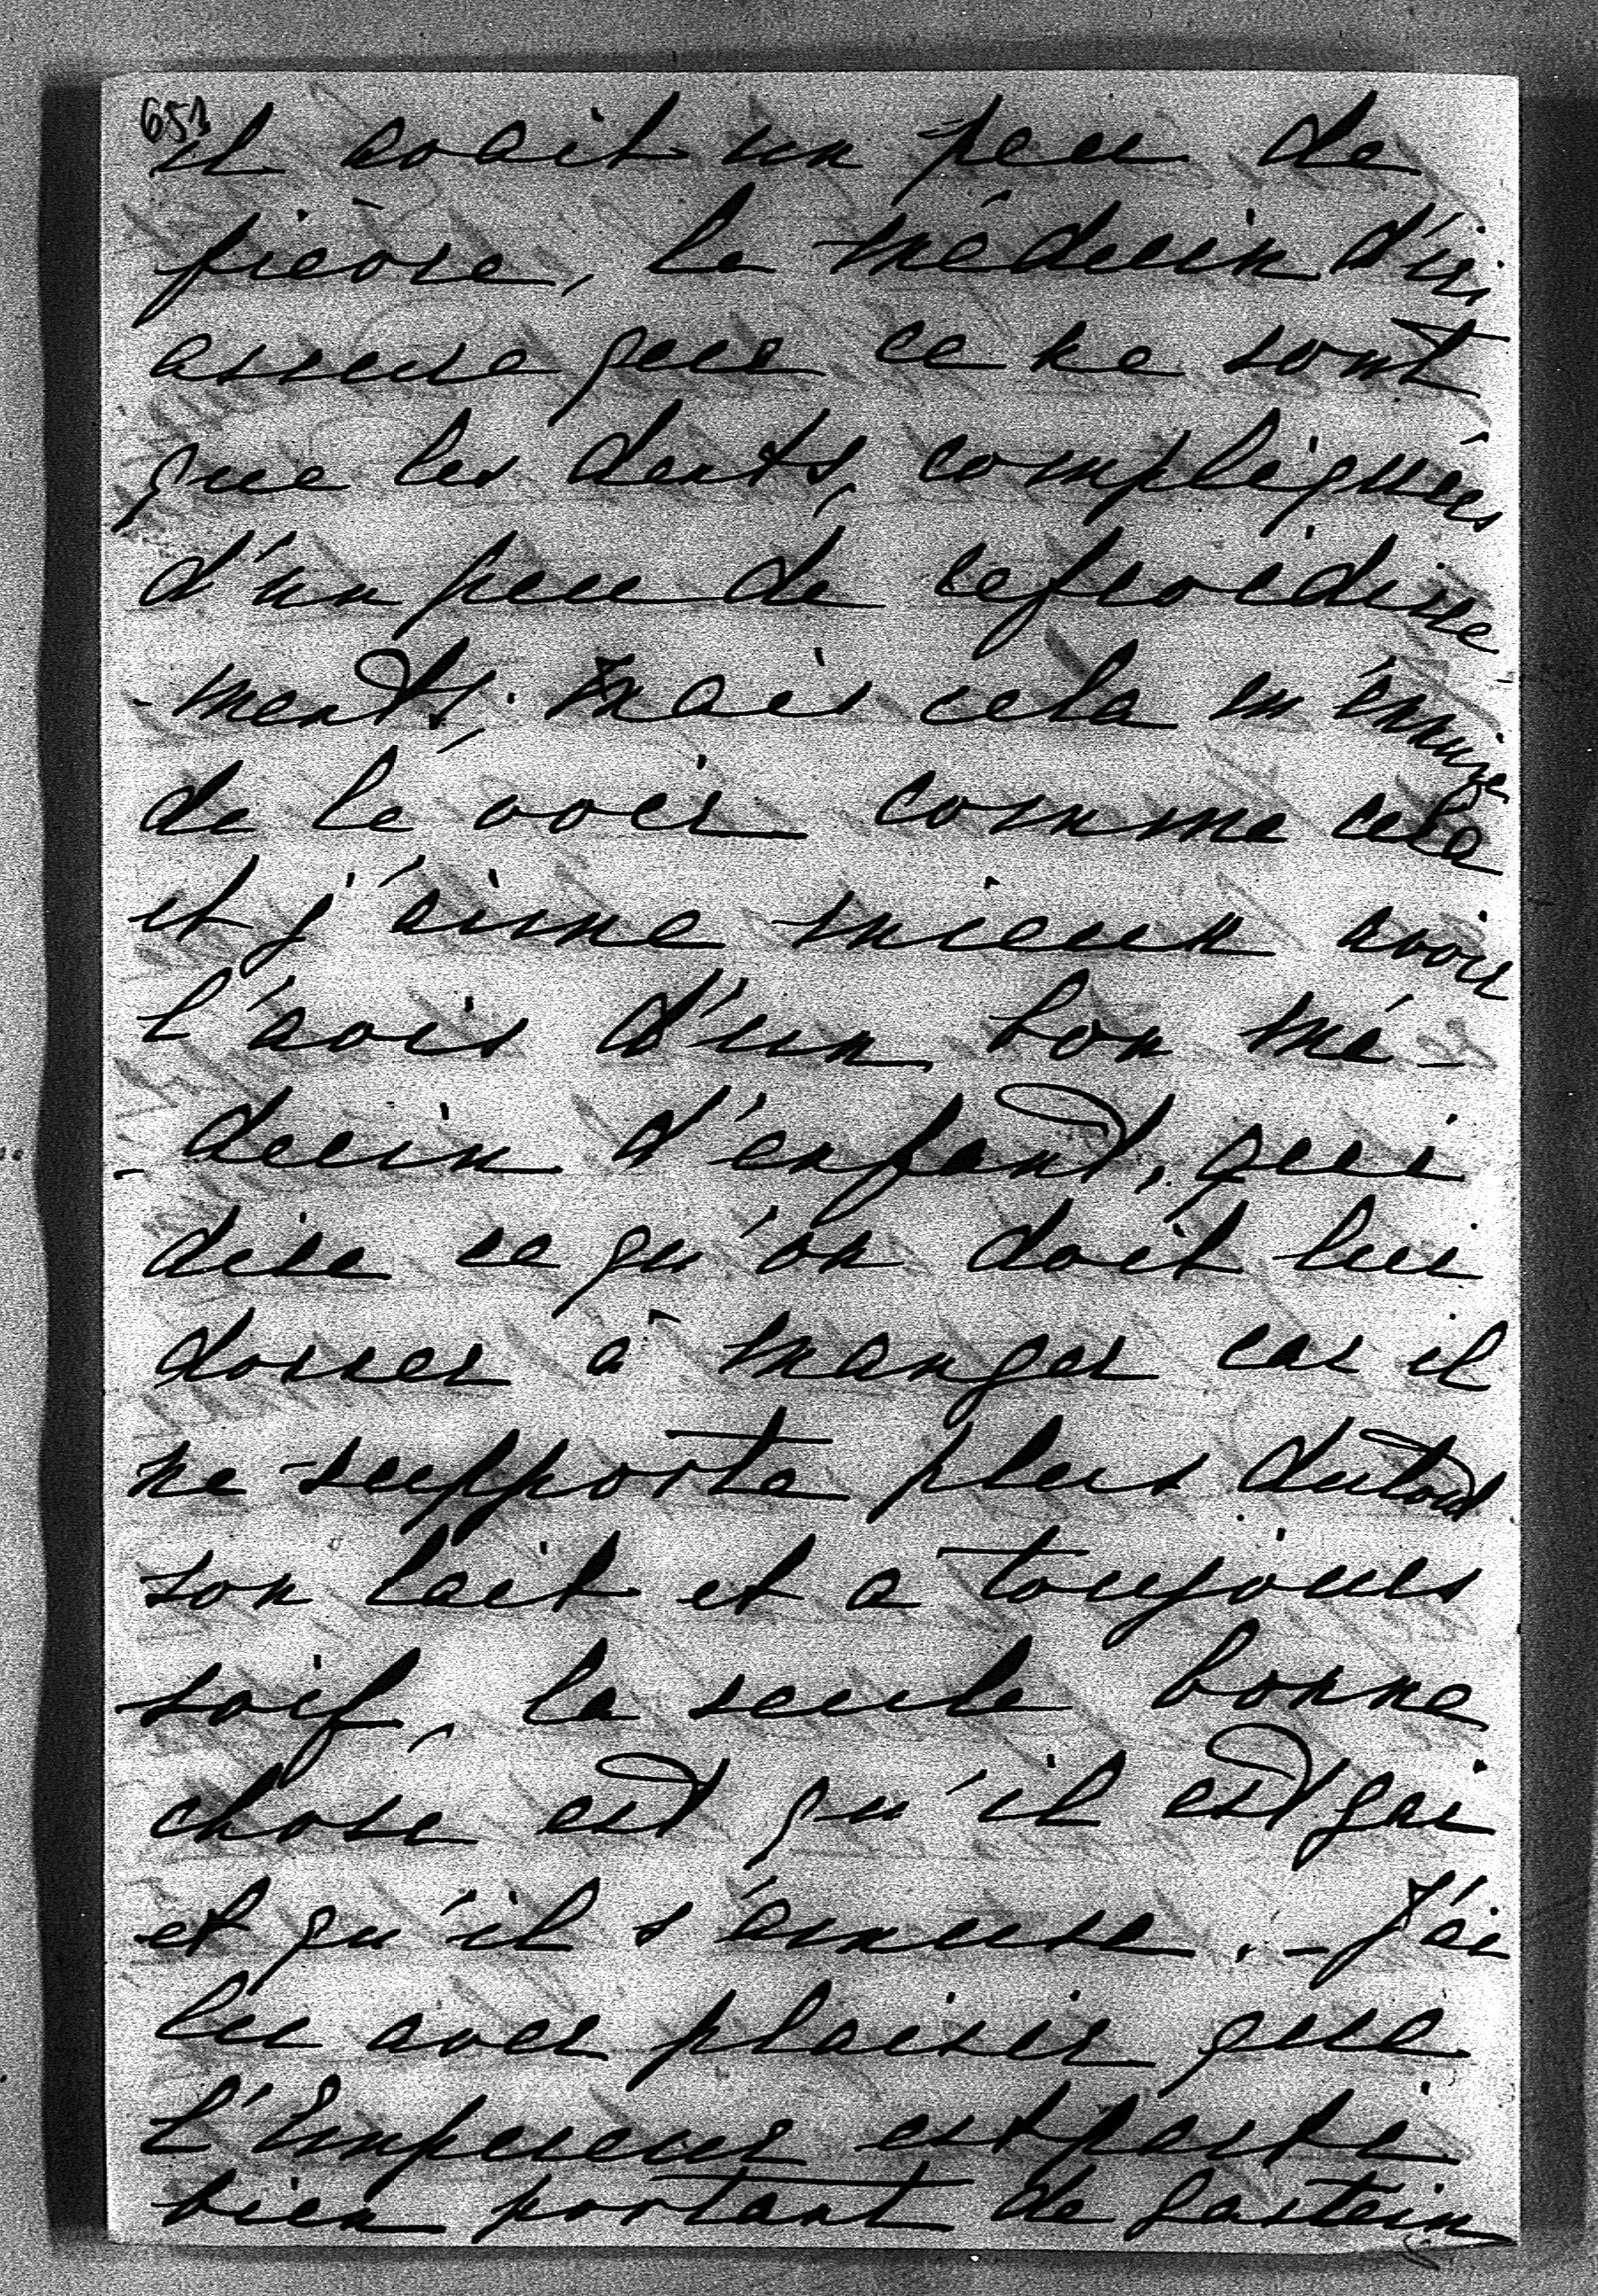 651
il avait un peu de
fièvre, le médecin d'ici
assure que ce ne sont
que les dents, compliquées
d'un peu de refroidisse
-ments, mais cela m'ennuie
de le voir comme cela
et j'aime mieux avoir
l'avis d'un bon mé-
-decin d'enfant, qui
dise ce qu'on doit lui
donner à manger car il
ne supporte plus dutout
son lait et a toujours
soif, la seule bonne
chose est qu'il est gai
et qu'il s'amuse. - J'ai
lu avec plaisir que
l'Empereur est parti
bien portant de Gastein